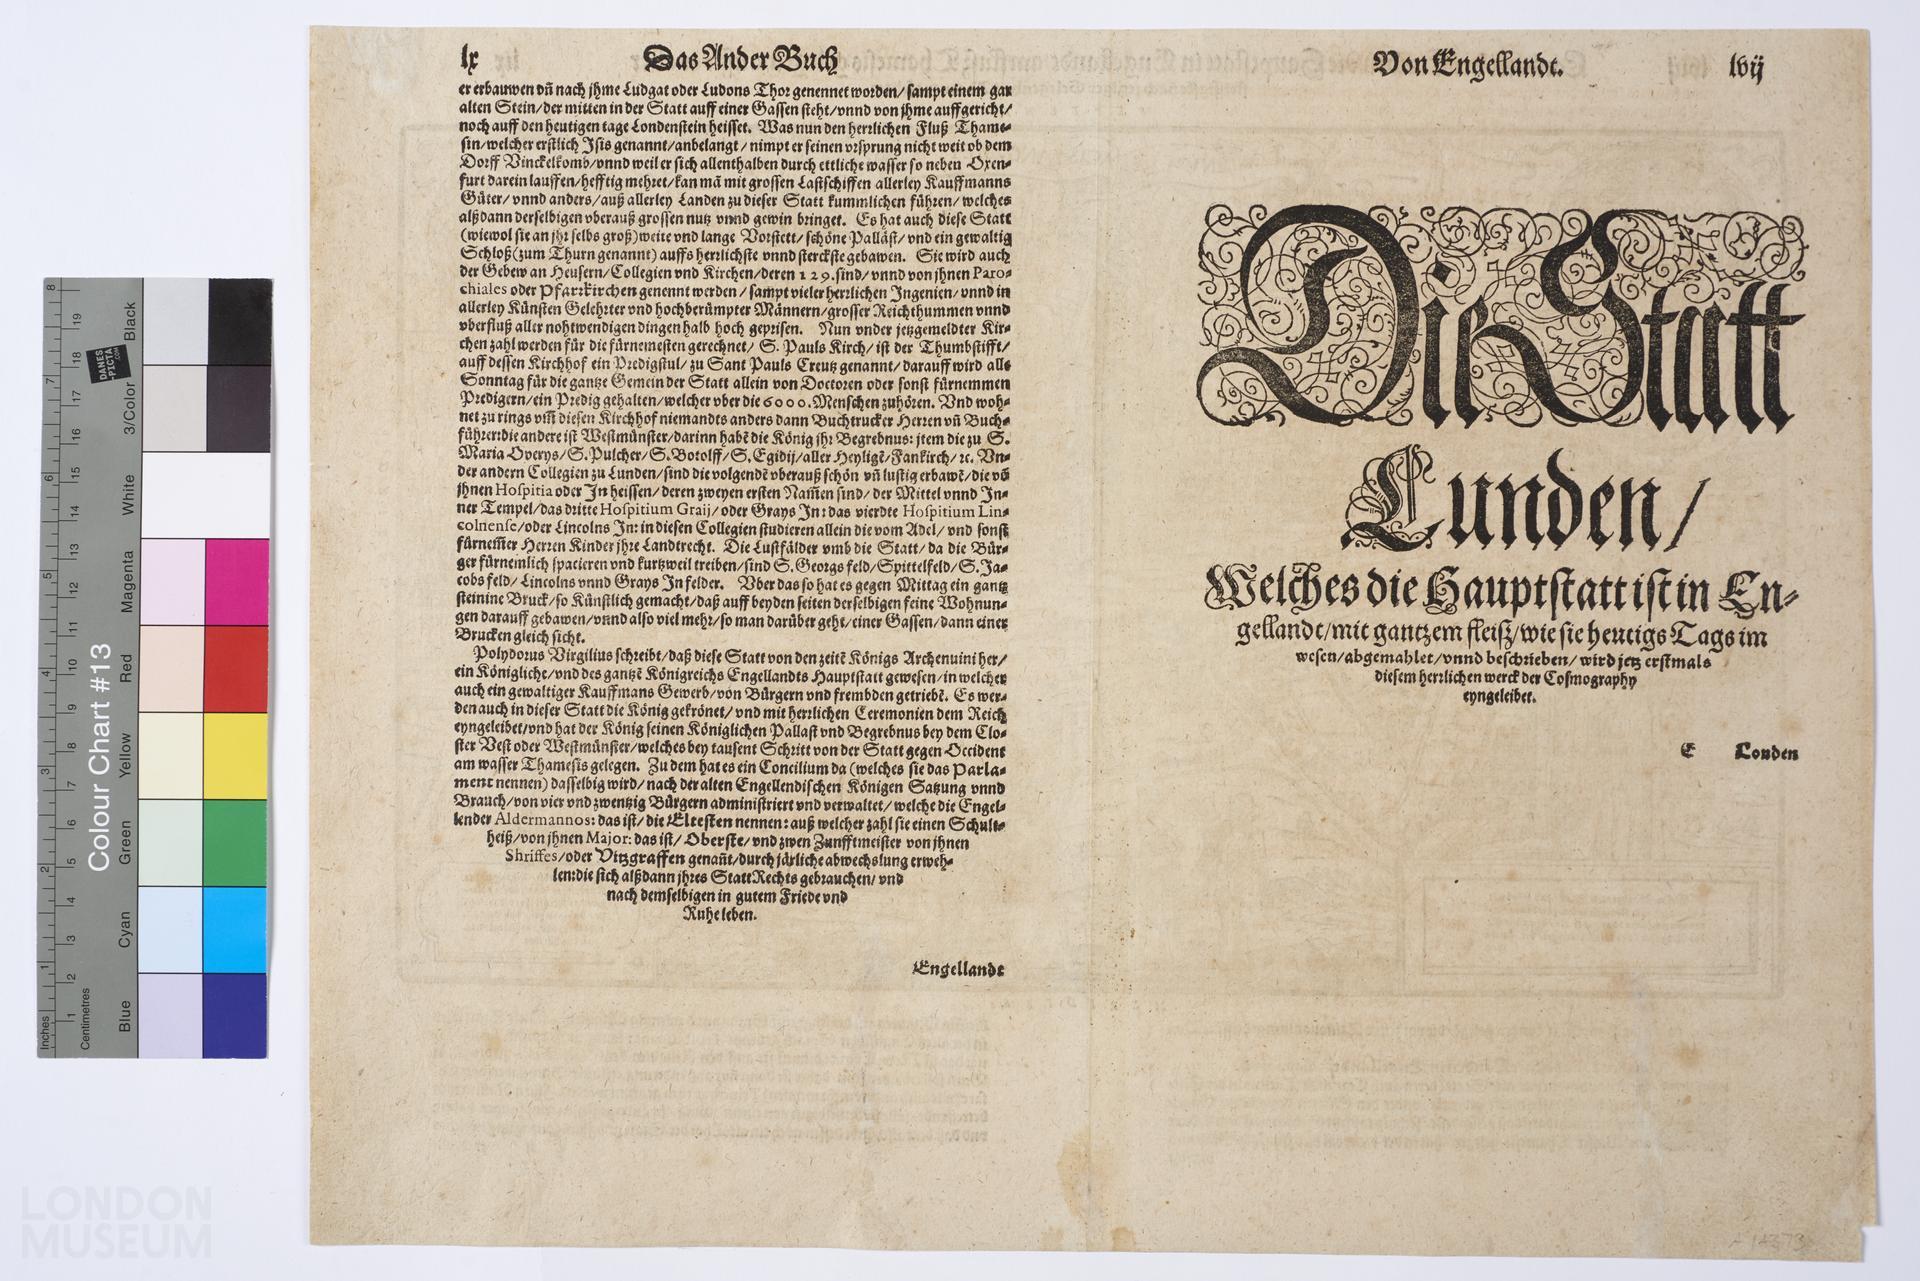 lx Das Ander Buch
er erbauwen vñ nach jhme Ludgat oder Ludons Thor genennet worden/ sampt einem gar
alten Stein/der mitten in der Statt auff einer Gassen steht/vnnd von jhme auffgericht/
noch auff den heutigen tage Londenstein heisset. Was nun den herrlichen Fluß Thame-
sin/welcher erstlich Isis genannt/anbelangt/ nimpt er seinen vrsprung nicht weit ob dem
Dorff Vinckelkomb/vnnd weil er sich allenthalben durch ettliche wasser so neben Oxen-
furt darein lauffen/hefftig mehret/kan mā mit grossen Lastschiffen allerley Kauffmanns
Güter/ vnnd anders/auß allerley Landen zu dieser Statt kummlichen führen/ welches
alßdann derselbigen vberauß grossen nutz vnnd gewin bringet. Es hat auch diese Statt
(wiewol sie an jhr selbs groß)weite vnd lange Vorstett/ schöne Palläst/ vnd ein gewaltig
Schloß(zum Thurn genannt) auffs herrlichste vnnd sterckste gebawen. Sie wird auch
der Gebew an Heusern/Collegien vnd Kirchen/deren 129.sind/ vnnd von jhnen Paro-
chiales oder Pfarrkirchen genennt werden/ sampt vieler herrlichen Ingenien/ vnnd in
allerley Künsten Gelehrter vnd hochberümpter Männern/grosser Reichthummen vnnd
vberfluß aller nohtwendigen dingen halb hoch geprisen. Nun vnder jetzgemeldter Kir-
chen zahl werden für die fürnemesten gerechnet/ S. Pauls Kirch/ ist der Thumbstifft/
auff dessen Kirchhof ein Predigstul/ zu Sant Pauls Creutz genannt/ darauff wird alle
Sonntag für die gantze Gemein der Statt allein von Doctoren oder sonst fürnemmen
Predigern/ein Predig gehalten/welcher vber die 6000.Menschen zuhören. Vnd woh-
net zu rings vm̃ diesen Kirchhof niemandts anders dann Buchtrucker Herren vñ Buch-
führer:die andere ist Westmünster/darinn habē die König jhr Begrebnus: jtem die zu S.
Maria Overys/S. Pulcher/S. Botolff/S. Egidij/aller Heyligē/Fankirch/ ꝛc. Vn-
der andern Collegien zu Lunden/sind die volgendē vberauß schön vñ lustig erbawē/die vō
jhnen Hospitia oder In heissen/ deren zweyen ersten Nam̃en sind/ der Mittel vnnd In-
ner Tempel/das dritte Hospitium Graij/ oder Grays In: das vierdte Hospitium Lin-
colnense/oder Lincolns In: in diesen Collegien studieren allein die vom Adel/ vnd sonst
fürnem̃er Herren Kinder jhre Landtrecht. Die Lustfälder vmb die Statt/da die Bür-
ger fürnemlich spacieren vnd kurtzweil treiben/sind S. Georgs feld/Spittelfeld/S. Ja-
cobs feld/ Lincolns vnnd Grays In felder. Vber das so hat es gegen Mittag ein gantz
steinine Bruck/so Künstlich gemacht/daß auff beyden seiten derselbigen feine Wohnun-
gen darauff gebawen/vnnd also viel mehr/so man darüber geht/einer Gassen/dann einer
Brucken gleich sicht.
Polydorus Virgilius schreibt/daß diese Statt von den zeitē Königs Archenuini her/
ein Königliche/vnd des gantzē Königreichs Engellandts Hauptstatt gewesen/in welcher
auch ein gewaltiger Kauffmans Gewerb/von Bürgern vnd frembden getriebē. Es wer-
den auch in dieser Statt die König gekrönet/vnd mit herrlichen Ceremonien dem Reich
eyngeleibet/vnd hat der König seinen Königlichen Pallast vnd Begrebnus bey dem Clo-
ster Vest oder Westmünster/welches bey tausent Schritt von der Statt gegen Occident
am wasser Thamesis gelegen. Zu dem hat es ein Concilium da (welches sie das Parla-
ment nennen) dasselbig wird/ nach der alten Engellendischen Königen Satzung vnnd
Brauch/von vier vnd zwentzig Bürgern administriert vnd verwaltet/ welche die Engel-
lender Aldermannos: das ist/ die Eltesten nennen: auß welcher zahl sie einen Schult-
heiß/von jhnen Major: das ist/ Oberste/ vnd zwen Zunfftmeister von jhnen
Shriffes/oder Vitzgraffen genañt/durch järliche abwechslung erweh-
len:die sich alßdann jhres StattRechts gebrauchen/ vnd
nach demselbigen in gutem Friede vnd
Ruhe leben.
Engellandt
Von Engellandt. lvij
Die Statt
Lunden/
Welches die Hauptstatt ist in En-
gellandt/mit gantzem fleisz/wie sie heutigs Tags im
wesen/abgemahlet/vnnd beschrieben/ wird jetz erstmals
diesem herrlichen werck der Cosmography
eyngeleibet.
E Londen
Colour Chart #13
DANES
-PICTA
.COM
Black
3/Color
White
Magenta
Red
Yellow
Green
Cyan
Blue
Inches
Centimetres
LONDON
MUSEUM